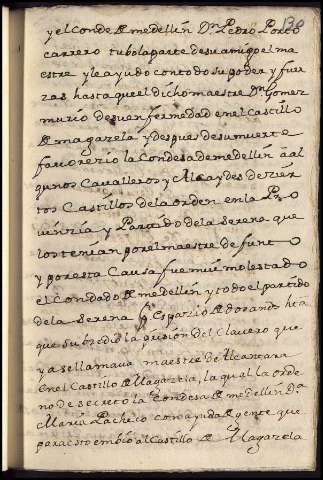 130
y el Conde de medellin Dn Pedro Porto
carrero tubo la parte de su amigo el ma
estre y le ayudo con todo su poder y fuer
zas hasta que el dicho maestre Dn Gomez
murio de su enfermedad en el Castillo
de magazela y despues de su muerte
favorezio la Condesa de medellin a al
gunos Cavalleros y Alcaydes de zier
tos Castillos de la orden en la Pro
vinzia y Partido de la Serena que
los tenian por el maestre defunto
y por esta Causa fue mui molestado
el Condado de medellin y todo el partido
de la Serena Espazio de dos años hta
que subzedio la prision del Clavero que
ya se llamava maestre de Alcantara
en el Castillo de Magazela, la qual la orde
no de secreto la Condesa de medellin Da
Maria Pacheco con ayuda de gente que
para esto embio al Castillo de Magazela